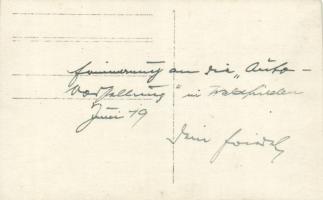 Erinnerung an die „Auto-
Vorstellung" in Waldfrieden
Juni 19
Dein Friedl